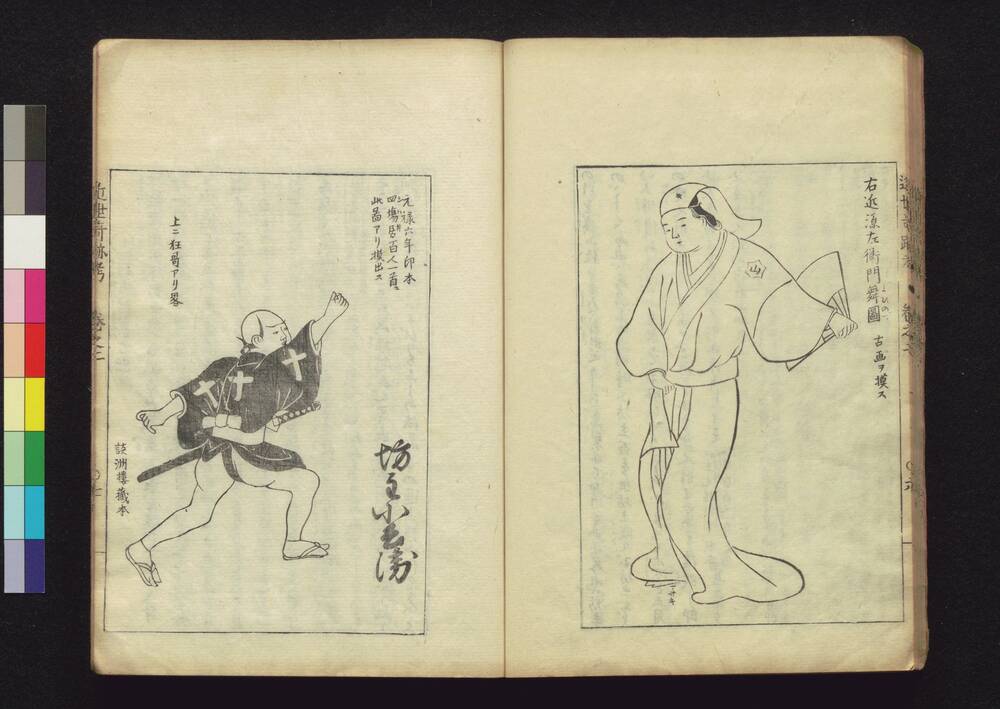 右近源左衛門舞圖 古画ヲ摸ス
山
元禄六年印本
四場居百人一首ニ
此圖アリ摸出ス
坊主小兵衛
上ニ狂哥アリ畧
談洲樓蔵本
近世奇跡考 巻之二